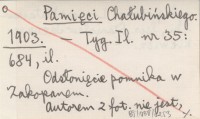 Pamięci Chałubińskiego.
1903. Tyg. Il. nr 35:
684, il.
Odsłonięcie pomnika w
Zakopanem.
autorem 2 fot. nie jest,